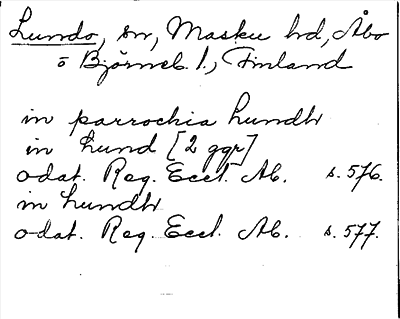 Lundo, sn, Masku hd, Åbo
o Björneb. l., Finland
in parrochia lundh
in lund [2 ggr]
odat. Reg. Eccl. Ab. s. 576.
in lundh
odat. Reg. Eccl. Ab. s. 577.